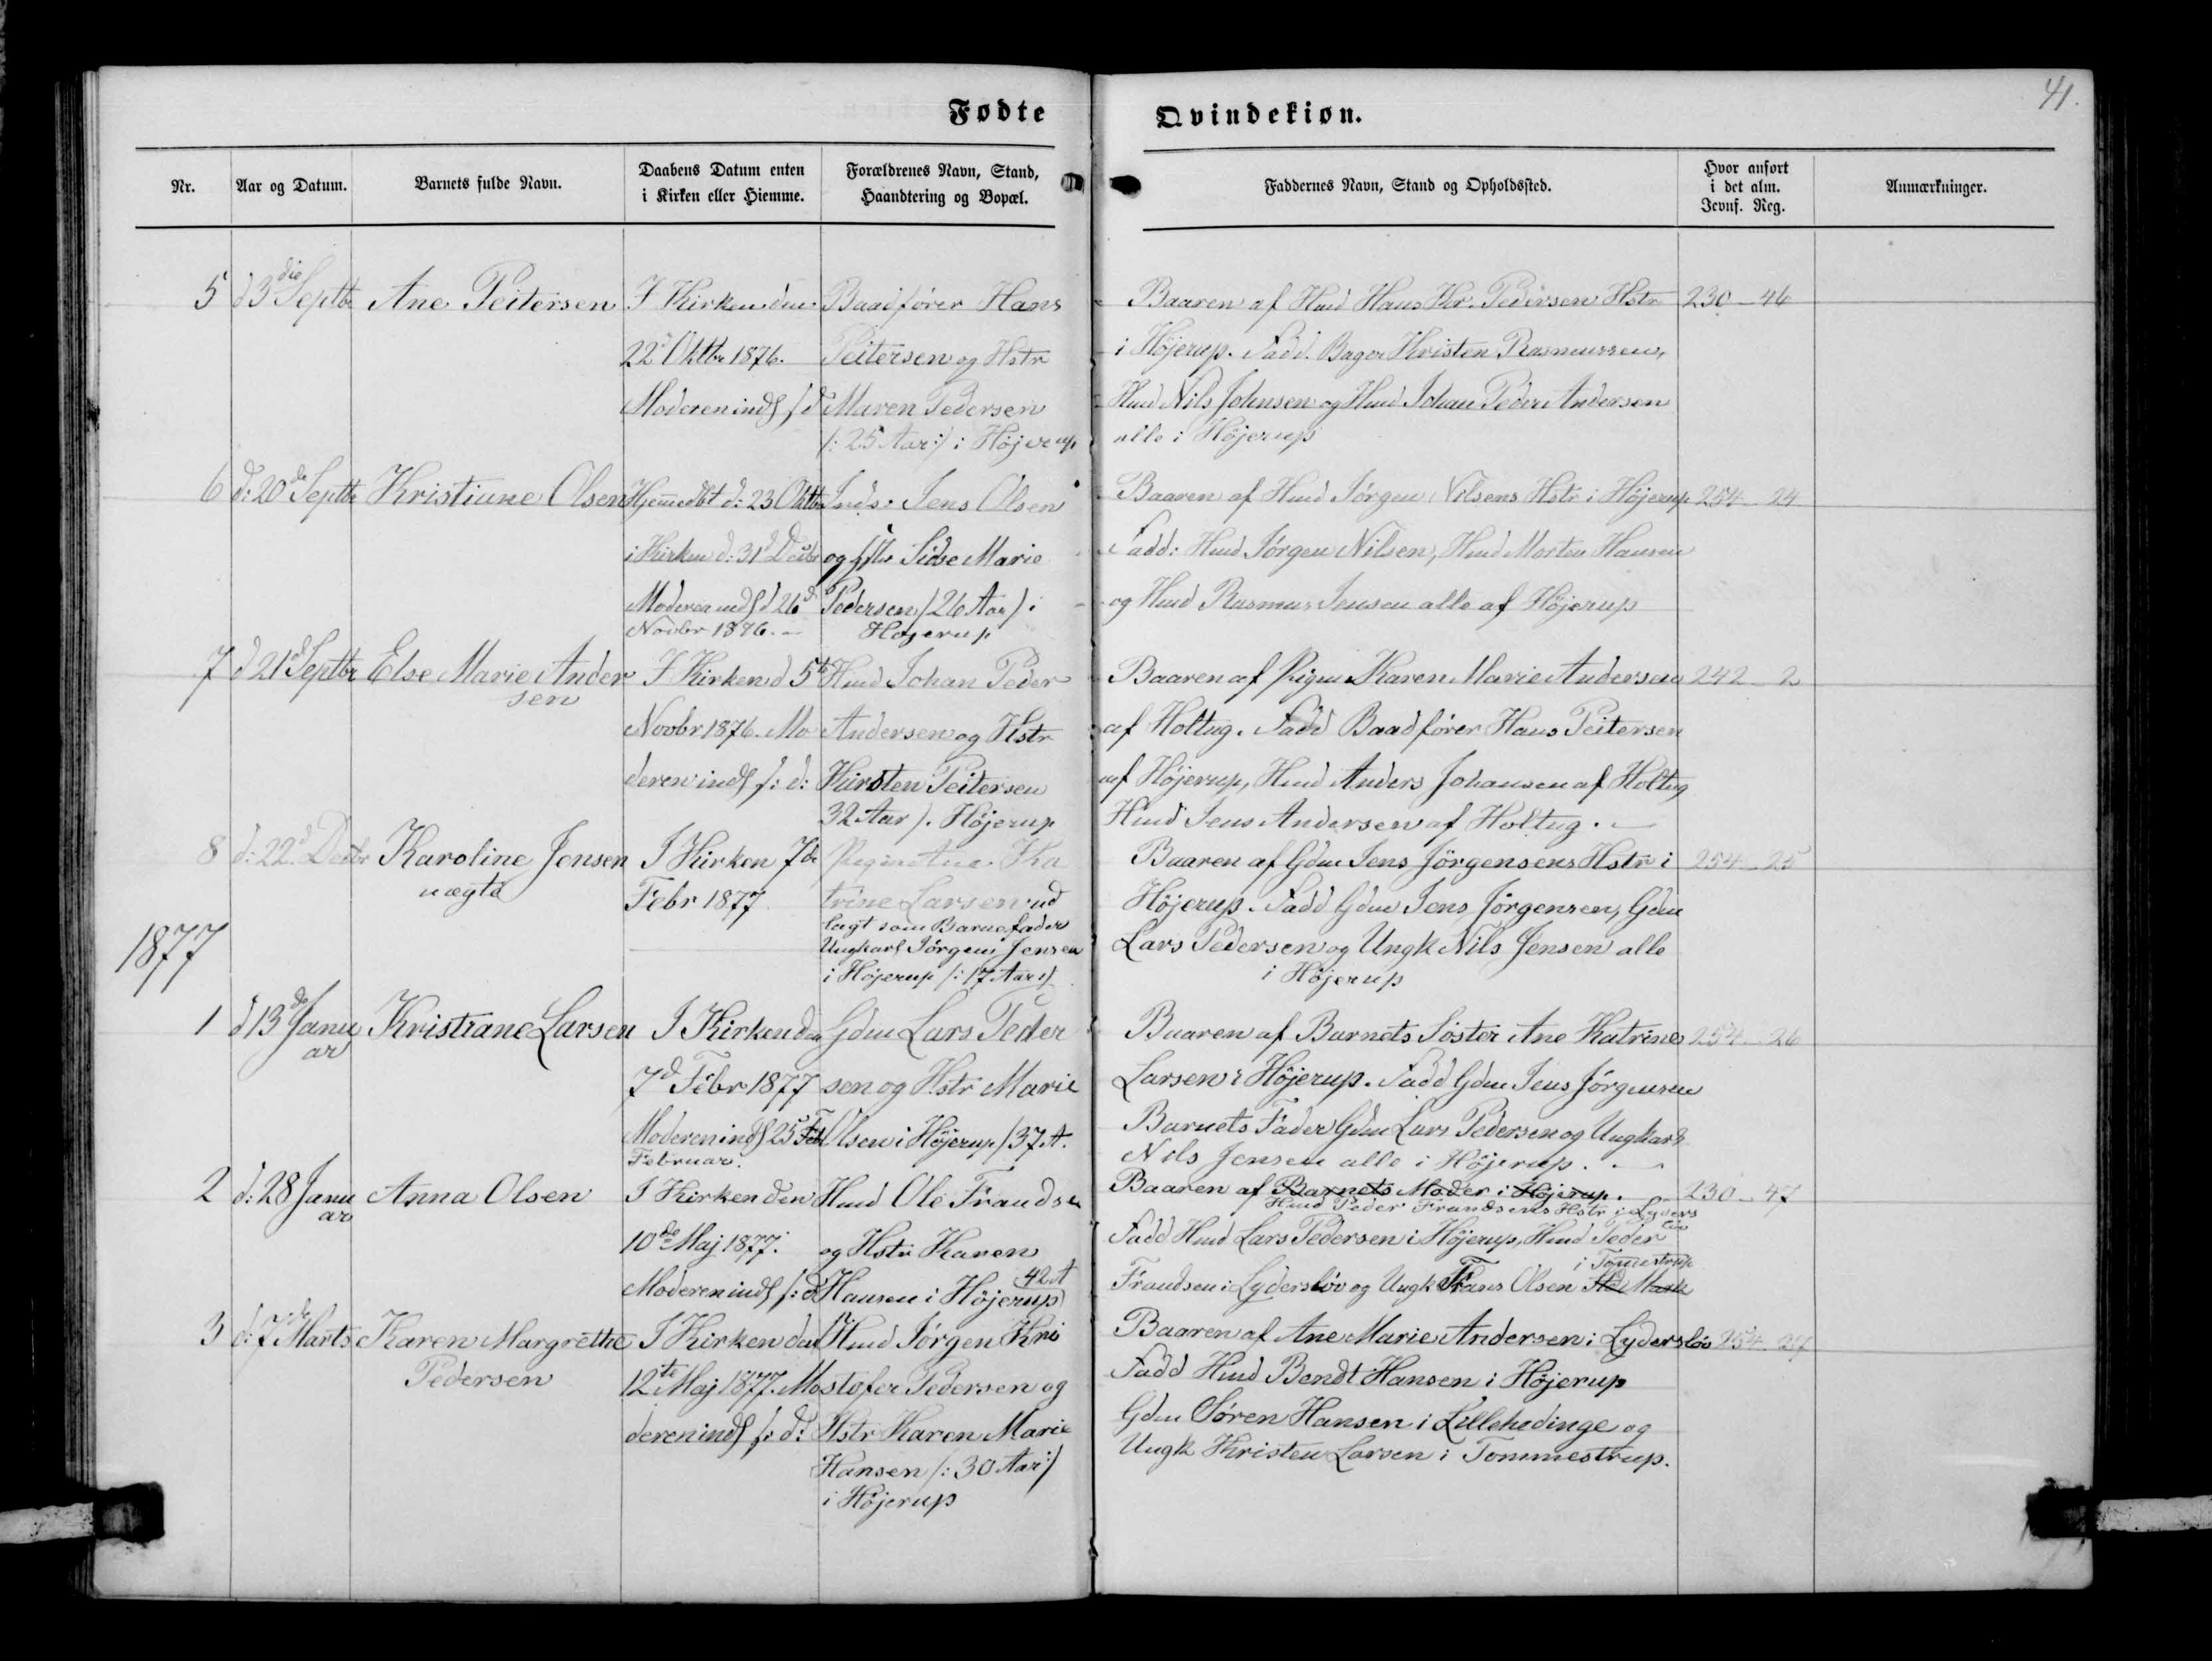 Fødte
Qvindekiøn.
41.
Nr.
Aar og Datum.
Barnets fulde Navn.
Daabens Datum enten
i Kirken eller Hiemme.
Forældrenes Navn, Stand,
Haandtering og Bopæl.
Faddernes Navn, Stand og Opholdssted.
Hvor anført
i det alm.
Jevnf. Reg.
Anmærkninger.
5
d 3die Septbr
Ane Peitersen
I Kirken den
22d Oktbr 1876.
Moderen indl s d
Baadfører Hans
Peitersen og Hstr
Maren Pedersen
/: 25 Aar :/ i Højerup
Baaren af Hmd Hans Kr. Pedersen Hstr
i Højerup. Fadd. Bager Kristen Rasmussen,
Hmd Nils Johnsen og Hmd Johan Peder Andersen
alle i Højerup
230 - 46
6
d: 20de Septbr
Kristiane Olsen
Hjemedbt d: 23 Oktbr
i Kirken d: 31d Decbr
Moderen indl d 26d
Novbr 1876. -
Inds: Jens Olsen
og Hstr Sidse Marie
Pedersen / 26 Aar / i
Højerup
Baaren af Hmd Jörgen Nilsens Hstr i Højerup
Fadd: Hmd Jörgen Nilsen, Hmd Morten Hansen
og Hmd Rasmus Jensen alle af Højerup
254 - 24
7
d 21d Septbr
Else Marie Ander
sen
I Kirken d 5te
Novbr 1876. Mo
deren indl s: d:
Hmd Johan Peder
Andersen og Hstr
Kirsten Peitersen
32 Aar /. Højerup
Baaren af Pigen Karen Marie Andersen
af Holtug. Fadd Baadfører Hans Peitersen
af Højerup, Hmd Anders Johansen af Holtug
Hmd Jens Andersen af Holtug. -
242 - 2
8
d: 22d Decbr
Karoline Jensen
uægte
I Kirken 7de
Febr 1877
Pigen Ane Ka
trine Larsen ud
lagt som Barnefader
Ungkarl Jörgen Jensen
i Højerup /: 17 Aar :/
Baaren af Gdm Jens Jörgensens Hstr i
Höjerup. Fadd Gdm Jens Jörgensen, Gdm
Lars Pedersen og Ungk Nils Jensen alle
i Höjerup
254 - 25
1877
1
d 13de Janu
ar
Kristiane Larsen
I Kirken den
7d Febr 1877
Moderen indl 25d Feb
Februar.
Gdm Lars Peder
sen og Hstr Marie
Olsen i Højerup / 37 A.
Baaren af Barnets Söster Ane Katrine
Larsen i Höjerup. Fadd Gdm Jens Jörgensen
Barnets Fader Gdm Lars Pedersen og Ungkarl
Nils Jensen alle i Höjerup. -
254 - 26
2
d: 28 Janu
ar
Anna Olsen
I Kirken den
10de Maj 1877.
Moderen indl s: d
Hmd Ole Frandsen
og Hstr Karen
42 A
Hansen i Höjerup
Baaren af Barnets Moder i Höjerup.
Hmd Peder Frandsens Hstr i Lyders
löv
Fadd Hmd Lars Pedersen i Höjerup, Hmd Peder
i Tommestrup
Frandsen i Lydersløv og Ungk Frans Olsen Mark
230 - 47
3
d: 7de Marts
Karen Margrethe
Pedersen
I Kirken den
12te Maj 1877. Mo
deren indl s: d:
Hmd Jörgen Kri
stofer Pedersen og
Hstr Karen Marie
Hansen /: 30 Aar :/
i Höjerup
Baaren af Ane Marie Andersen i Lydersløv
Fadd Hmd Bendt Hansen i Höjerup
Gdm Søren Hansen i Lillehedinge og
Ungk Kristen Larsen i Tommestrup.
254 - 27